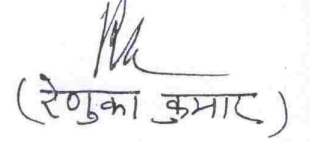 (रेणुका कुमार)